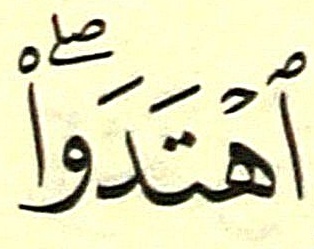 ٱهۡتَدَواْۖ